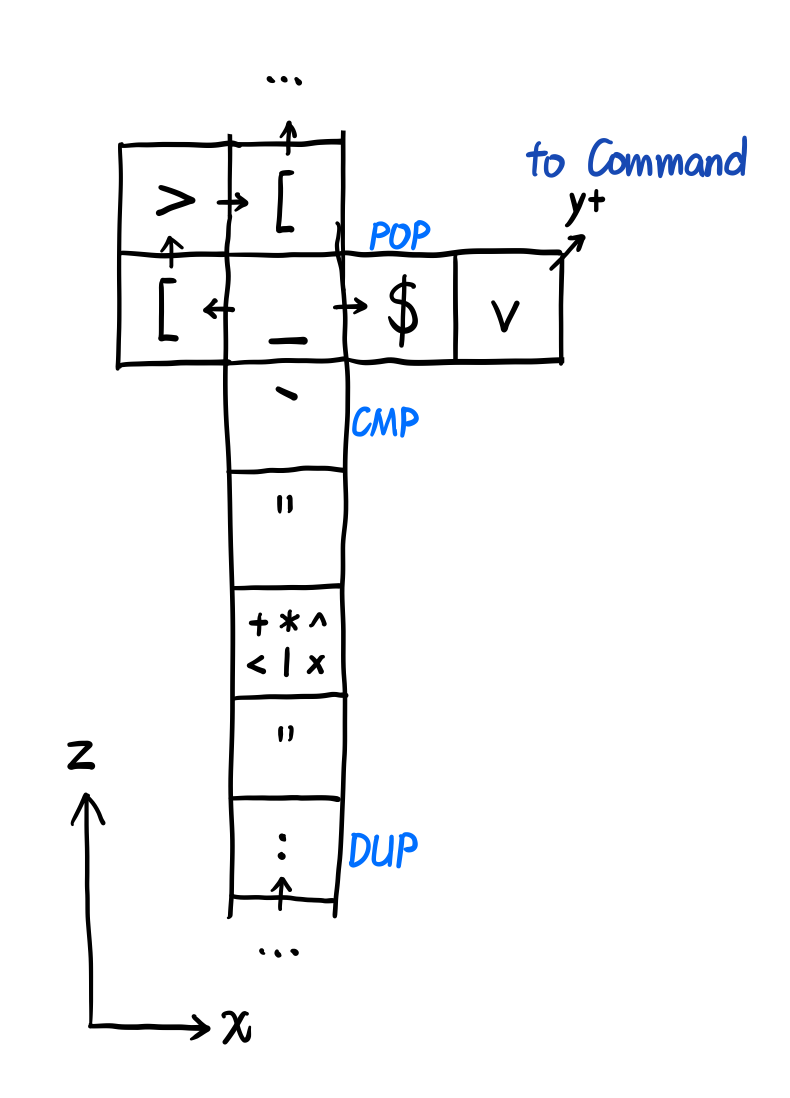 ...
to Command
y+
> [
POP
[ _ $ v
`
CMP
"
+ * ^
< | x
"
z
:
DUP
...
x